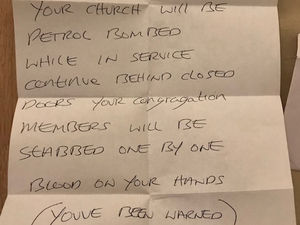 YOUR CHURCH WILL BE
PETROL BOMBED
WHILE IN SERVICE
CONTINUE BEHIND CLOSED
DOORS YOUR CONGRAGATION
MEMBERS WILL BE
STABBED ONE BY ONE
BLOOD ON YOUR HANDS
(YOUVE BEEN WARNED)